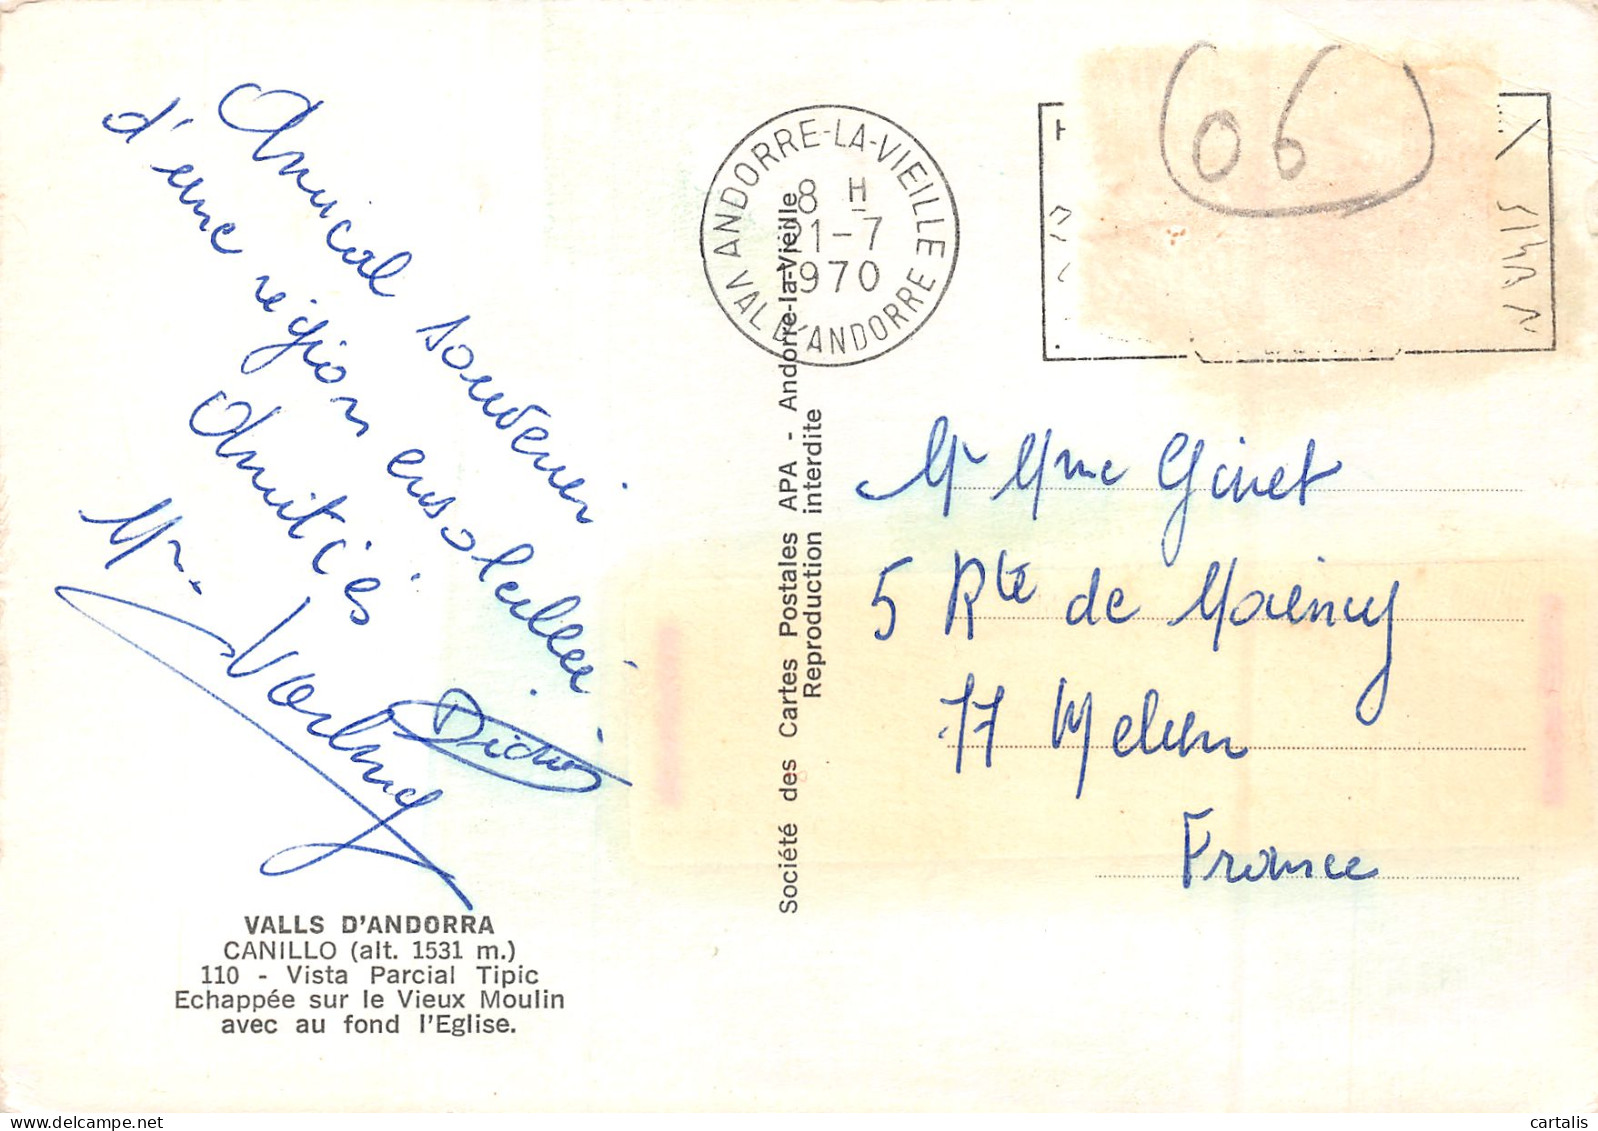 Amical souvenir
d'une région ensoleillée
Amitiés
Mr.
Didier
VALLS D'ANDORRA
CANILLO (alt. 1531 m.)
110 - Vista Parcial Tipic
Echappée sur le Vieux Moulin
avec au fond l'Eglise.
Société des Cartes Postales APA - Andorre-la-Vieille
Reproduction interdite
ANDORRE-LA-VIEILLE
8 H
21-7
1970
VAL D'ANDORRE
06
Mr Mme Ginet
5 Rte de Maincy
77 Melun
France
cartalis